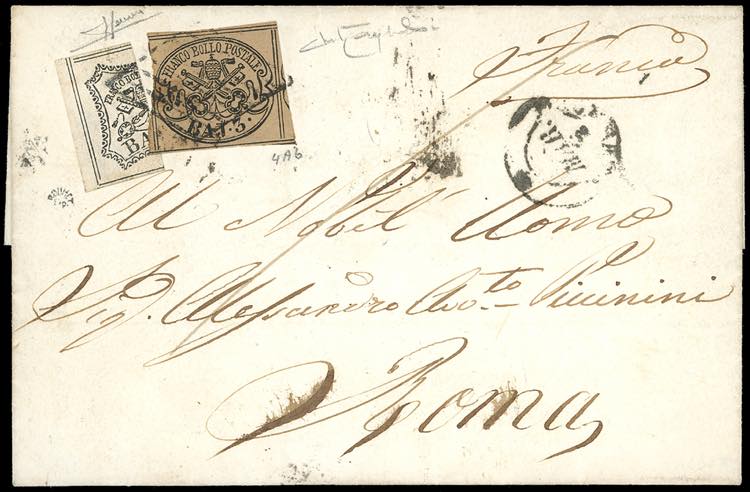 FRANCO BOLLO POSTALE
BAJ. 3.
FRANCO BO
BA
4A6
Franca
Al Nobil Uomo
Sig. Alessandro Avv.to Piccinini
Roma